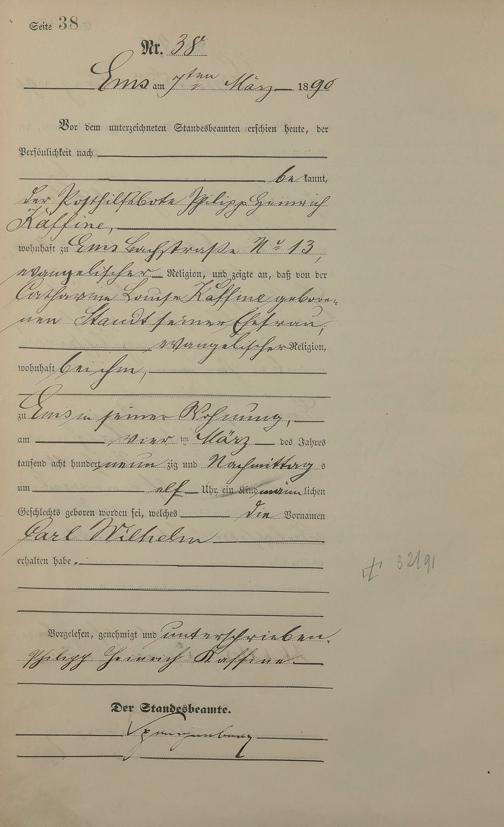 Seite 38
Nr. 38
Ems am 7ten März 1890
Vor dem unterzeichneten Standesbeamten erschien heute, der
Persönlichkeit nach
be kannt,
der Posthilfsbote Philipp Heinrich
Kaffine,
wohnhaft zu Ems Bachstraße No 13,
evangelischer Religion, und zeigte an, daß von der
Catharine Louise Kaffine gebore-
nen Standt seiner Ehefrau,
evangelischer Religion,
wohnhaft bei ihm,
zu Ems in seiner Wohnung,
am vier ten März des Jahres
tausend acht hundert neun zig und Nachmittag s
um elf Uhr ein Kind männ lichen
Geschlechts geboren worden sei, welches die Vornamen
Carl Wilhelm
erhalten habe.
† 32/91
Vorgelesen, genehmigt und unterschrieben.
Philipp Heinrich Kaffine
Der Standesbeamte.
Spangenberg